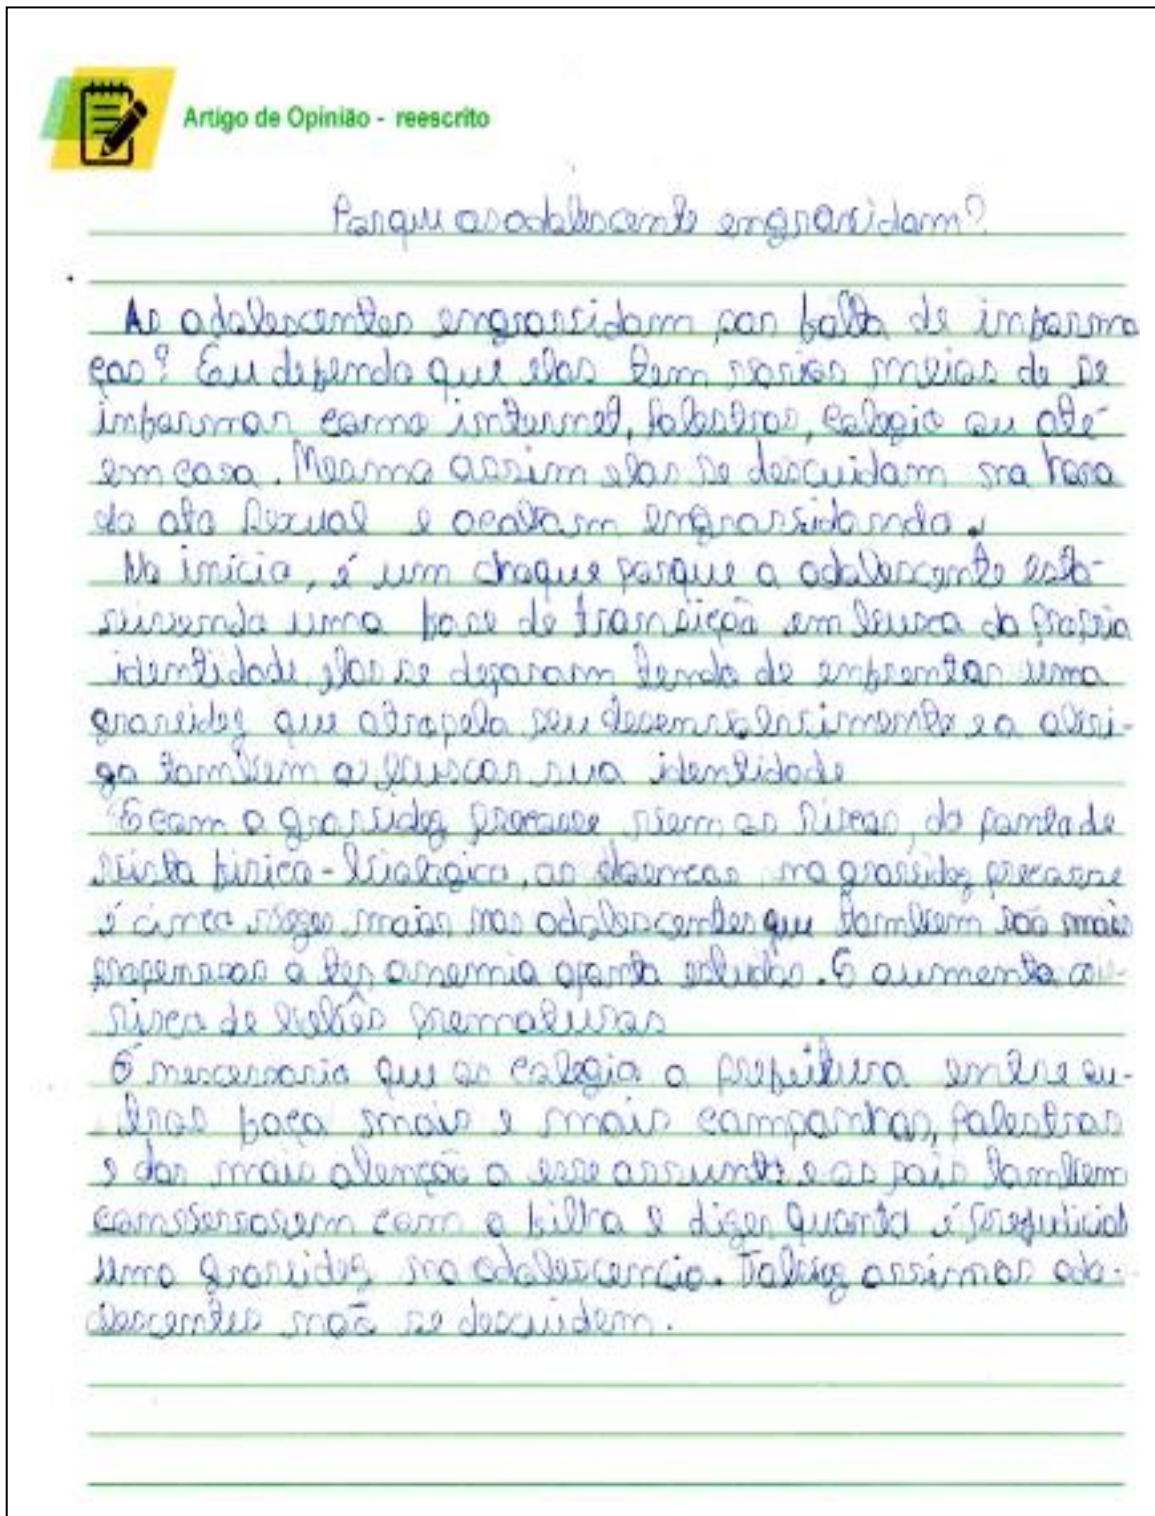 Artigo de Opinião - reescrito
Porque as adolescente engravidam?
As adolescentes engravidam por falta de informa
ças? Eu defendo que elas tem varios meios de se
informar como internet, palestras, colegio ou até
em casa. Mesmo assim elas se descuidam na hora
do ato sexual e acabam engravidando.
No inicio, é um choque porque a adolescente está
vivendo uma fase de transição em busca da propria
identidade, elas se deparam tendo de enfrentar uma
gravidez que atropela seu desenvolvimento e a obri-
ga tambem a buscar sua identidade
E com a gravidez precoce vem os riscos, do ponto de
vista fisico-biologico, as doencas na gravidez precosse
é cinco vezes mais nas adolescentes que tambem são mais
propensas a ter anemia aponta estudos. E aumenta o
risco de bebês prematuros
É nescessario que os colegio a prefeitura entre ou-
tros faça mais e mais campanhas, palestras
e dar mais atenção a esse assunto e os pais tambem
conversarem com a filha e dizer quanto é prejuticial
uma gravidez na adolescencia. Talvez assim as ado-
lescentes não se descuidem.